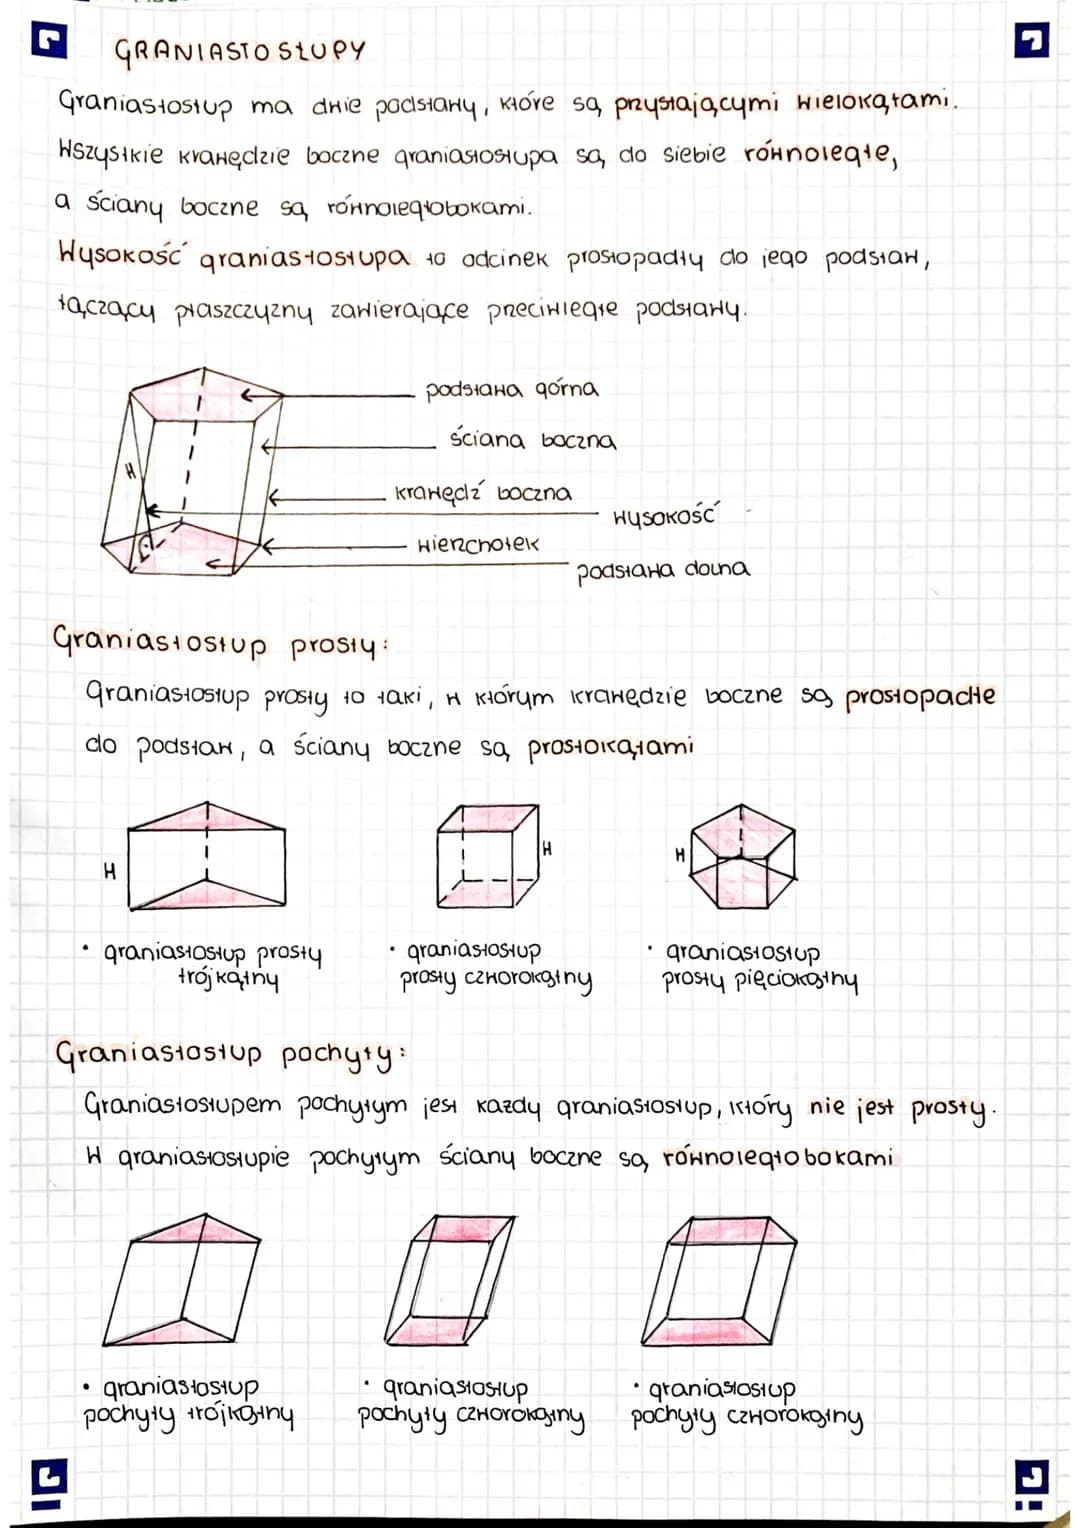 GRANIASTOSŁUPY
Graniastosłup ma dwie podstawy, które są przystającymi wielokątami.
Wszystkie krawędzie boczne graniastosłupa są do siebie równoległe,
a ściany boczne są równoległobokami.
Wysokość graniastosłupa to odcinek prostopadły do jego podstaw,
łączący płaszczyzny zawierające przeciwległe podstawy.
podstawa górna
ściana boczna
H
krawędź boczna
wysokość
wierzchołek
podstawa dolna
Graniastosłup prosty:
graniastosłup prosty to taki, w którym krawędzie boczne są prostopadłe
do podstaw, a ściany boczne są prostokątami
H
H
H
• graniastosłup prosty
trójkątny
• graniastosłup
prosty czworokątny
• graniastosłup
prosty pięciokątny
Graniastosłup pochyły:
Graniastosłupem pochyłym jest każdy graniastosłup, który nie jest prosty.
W graniastosłupie pochyłym ściany boczne są równoległobokami
• graniastosłup
pochyły trójkątny
• graniastosłup
pochyły czworokątny
• graniastosłup
pochyły czworokątny